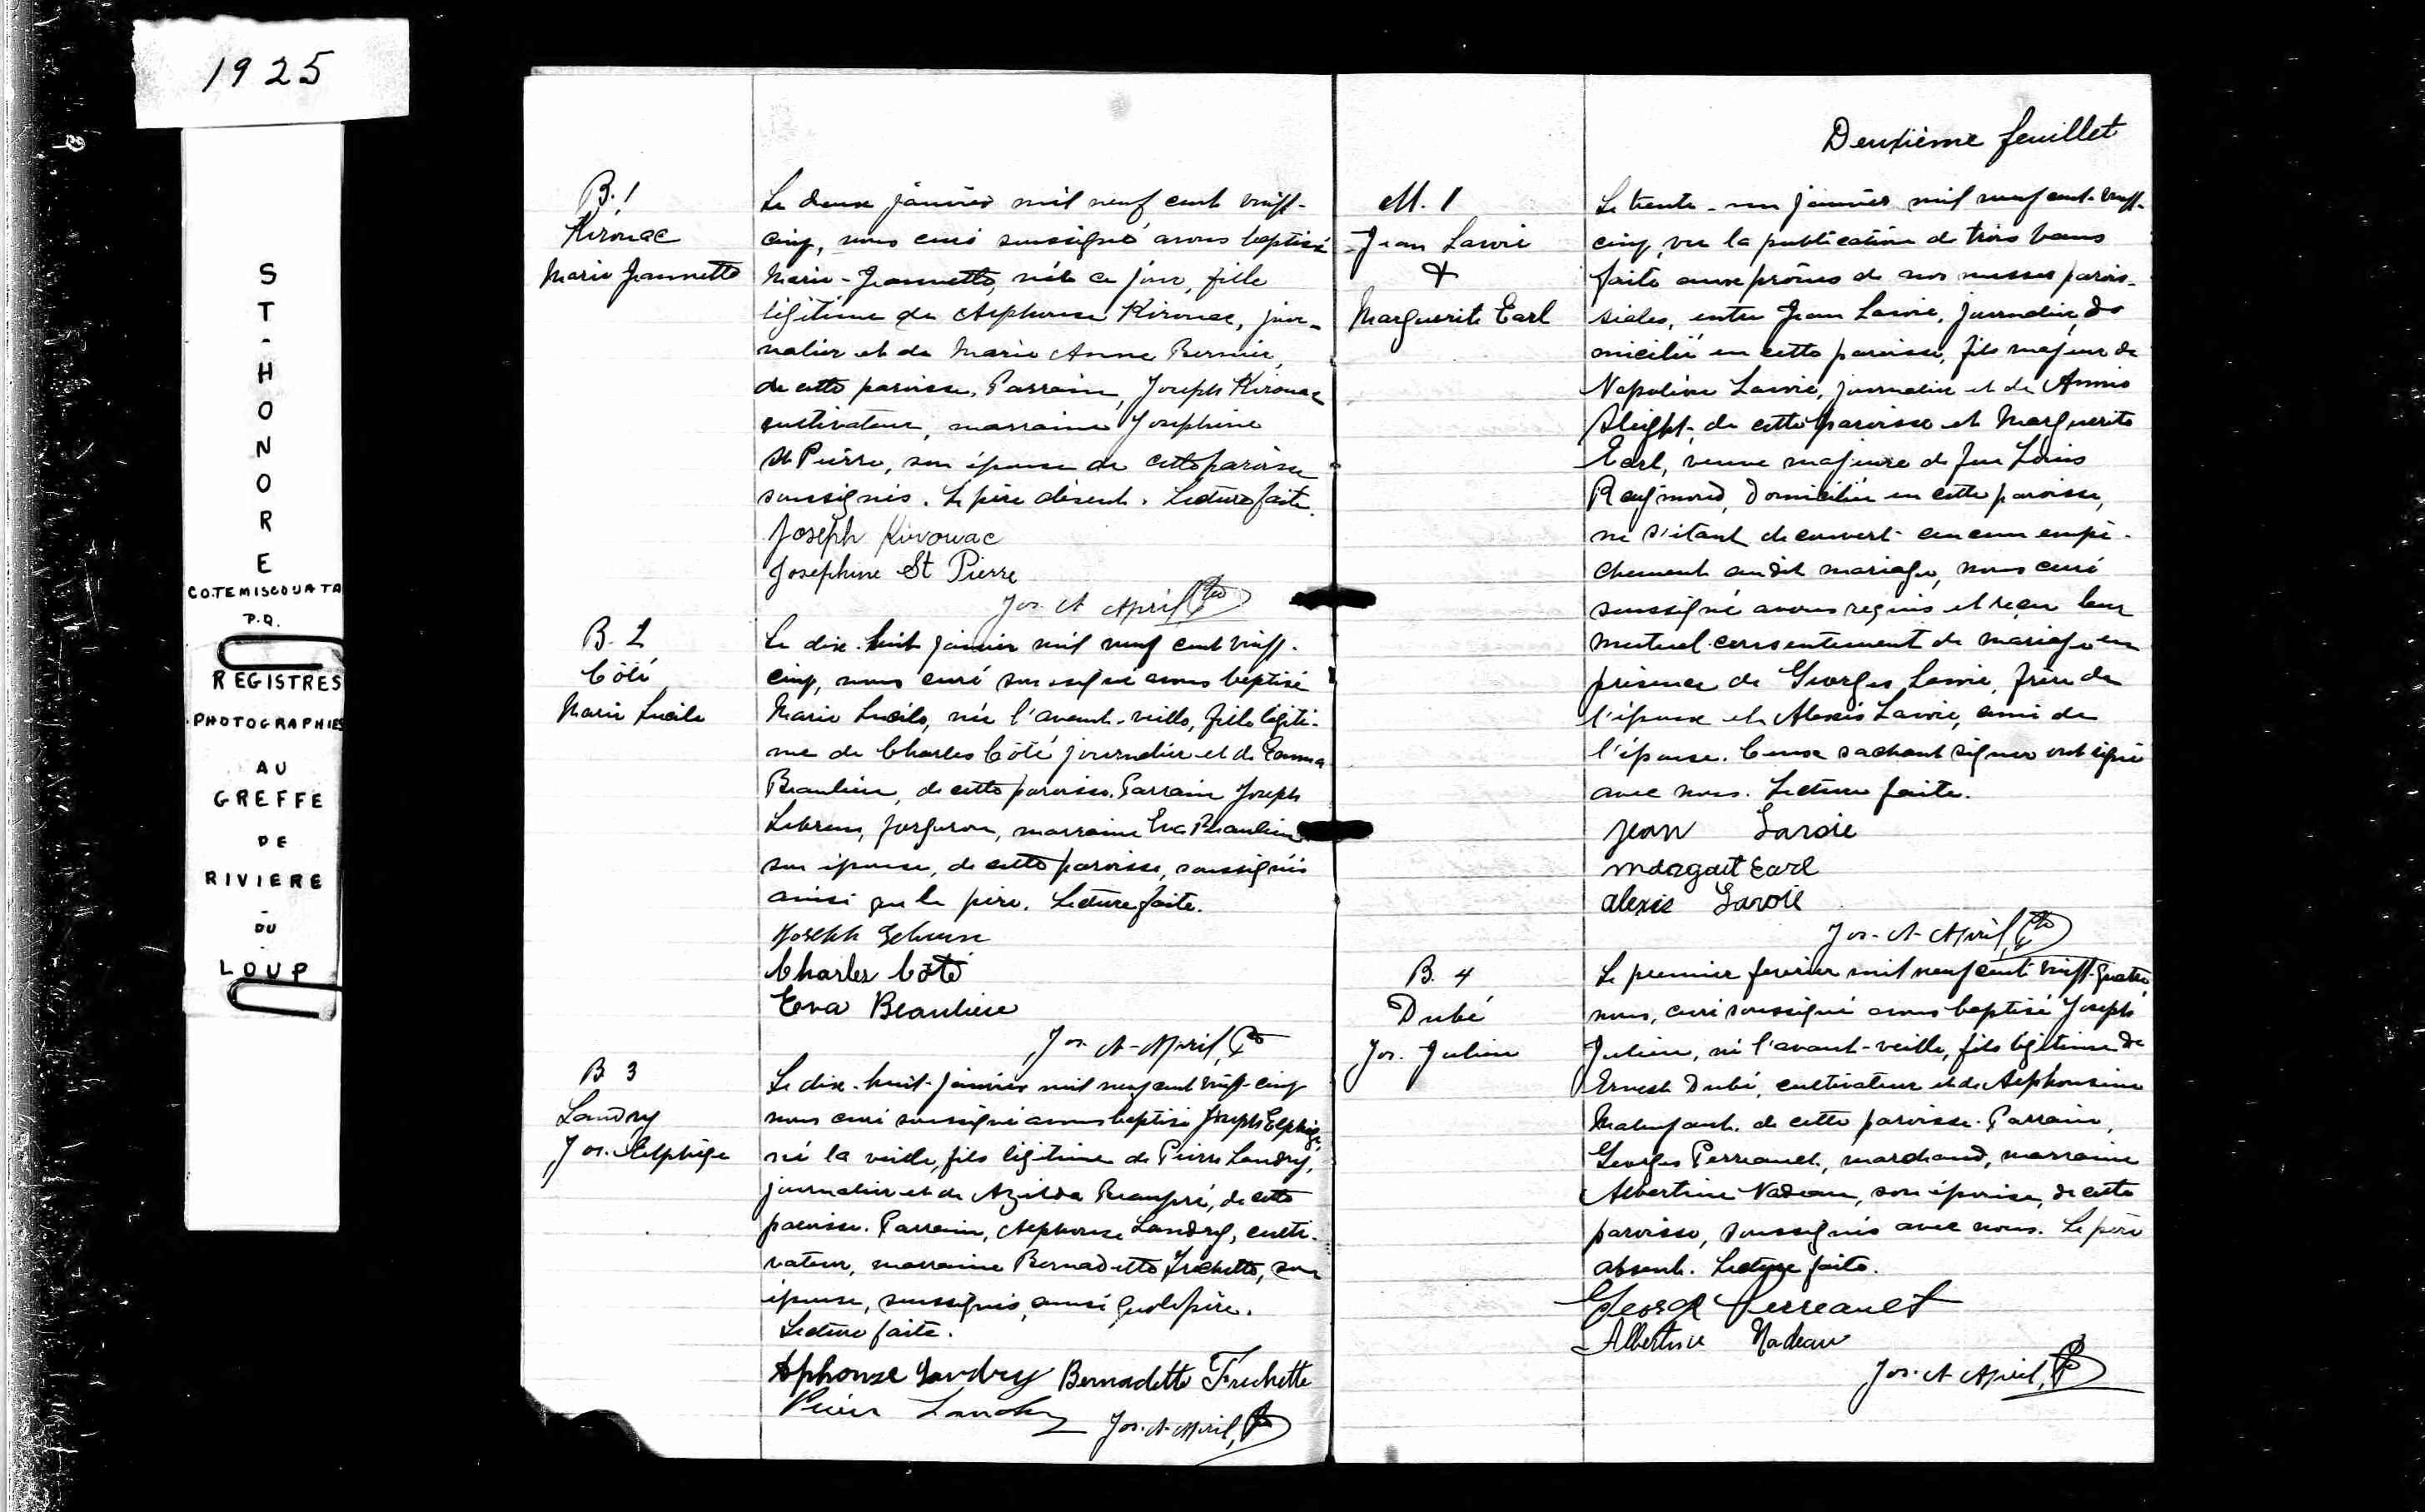 1925
ST-HONORE
CO.TEMISCOUATA
P.Q.
REGISTRES
PHOTOGRAPHIES
AU
GREFFE
DE
RIVIERE
-
DU
LOUP
B. 1
Kirouac
Marie Jeannette
Le deux janvier mil neuf cent vingt-
cinq, nous curé soussigné avons baptisé
Marie-Jeannette, née ce jour, fille
légitime de Alphonse Kirouac, jour-
nalier et de Marie Anne Bernier,
de cette paroisse. Parrain, Joseph Kirouac
cultivateur, marraine Joséphine
St Pierre, son épouse de cette paroisse
soussignés. Le père absent. Lecture faite.
Joseph Kirouac
Josephine St Pierre
Jos. A. April Ptre
B. 2
Côté
Marie Lucile
Le dix-huit janvier mil neuf cent vingt-
cinq, nous curé soussigné avons baptisé
Marie Lucile, née l'avant-veille, fille légiti-
me de Charles Côté journalier et de Emma
Beaulieu, de cette paroisse. Parrain Joseph
Lebrun, forgeron, marraine Eva Beaulieu
son épouse, de cette paroisse, soussignés
ainsi que le père. Lecture faite.
Joseph Lebrun
Charles Côté
Eva Beaulieu
Jos. A. April, Ptre
B 3
Landry
Jos. Elphège
Le dix-huit janvier mil neuf cent vingt-cinq
nous curé soussigné avons baptisé Joseph Elphège,
né la veille, fils légitime de Pierre Landry,
journalier et de Azilda Beaupré, de cette
paroisse. Parrain, Alphonse Landry, culti-
vateur, marraine Bernadette Frechette, son
épouse, soussignés, ainsi que le père.
Lecture faite.
Alphonse Landry Bernadette Frechette
Pierre Landry Jos. A. April, Ptre
Deuxième feuillet
M. 1
Jean Lavoie
&
Marguerite Earl
Le trente-un janvier mil neuf cent vingt-
cinq, vu la publication de trois bans
faite aux prônes de nos messes parois-
siales, entre Jean Lavoie, journalier, do
micilié en cette paroisse, fils majeur de
Napoléon Lavoie, journalier et de Annie
Sleight, de cette paroisse et Marguerite
Earl, veuve majeure de feu Louis
Raymond, domiciliée en cette paroisse,
ne s'étant découvert aucun empê-
chement au dit mariage, nous curé
soussigné avons requis et reçu leur
mutuel consentement de mariage en
présence de Georges Lavoie, frère de
l'époux et Alexis Lavoie, ami de
l'épouse. Ceux sachant signer ont signé
avec nous. Lecture faite.
Jean Lavoie
Margaret Earl
Alexis Lavoie
Jos. A. April, Ptre
B. 4
Dubé
Jos. Julien
Le premier février mil neuf cent vingt-quatre
nous, curé soussigné avons baptisé Joseph
Julien, né l'avant-veille, fils légitime de
Ernest Dubé, cultivateur et de Alphonsine
Malenfant, de cette paroisse. Parrain,
Georges Perreault, marchand, marraine
Albertine Nadeau, son épouse, de cette
paroisse, soussignés avec nous. Le père
absent. Lecture faite.
George Perreault
Albertine Nadeau
Jos. A. April, Ptre